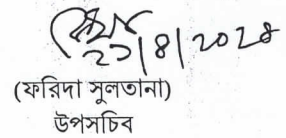 ২১/৪/২০২৪
(ফরিদা সুলতানা)
উপসচিব